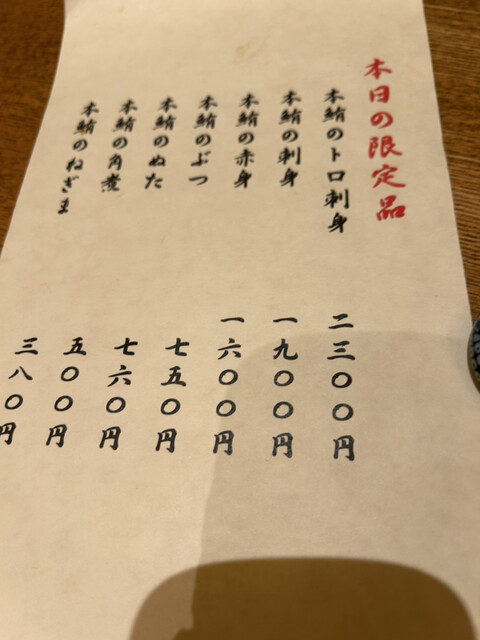 本日の限定品
本鮪のトロ刺身 二三〇〇円
本鮪の刺身 一九〇〇円
本鮪の赤身 一六〇〇円
本鮪のぶつ 七五〇円
本鮪のぬた 七六〇円
本鮪の角煮 五〇〇円
本鮪のねぎま 三八〇円